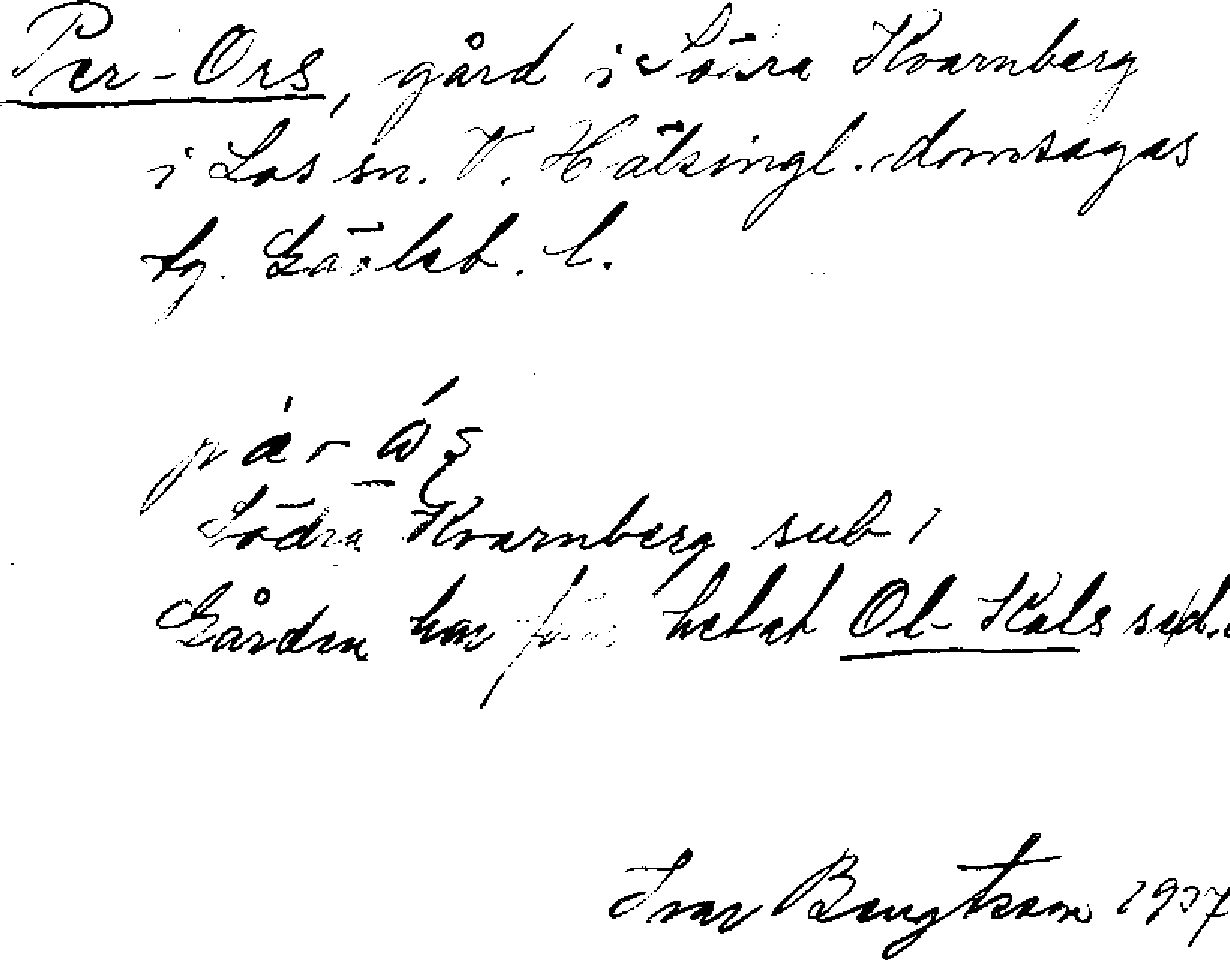 Per-Ors, gård i Södra Kvarnberg
i Los sn. V. Hälsingl. domsagas
tg. Gävleb. l.
Södra Kvarnberg sub 1
Gården har förr hetat Ol-Kals sid.
Ivar Bengtsson 1937